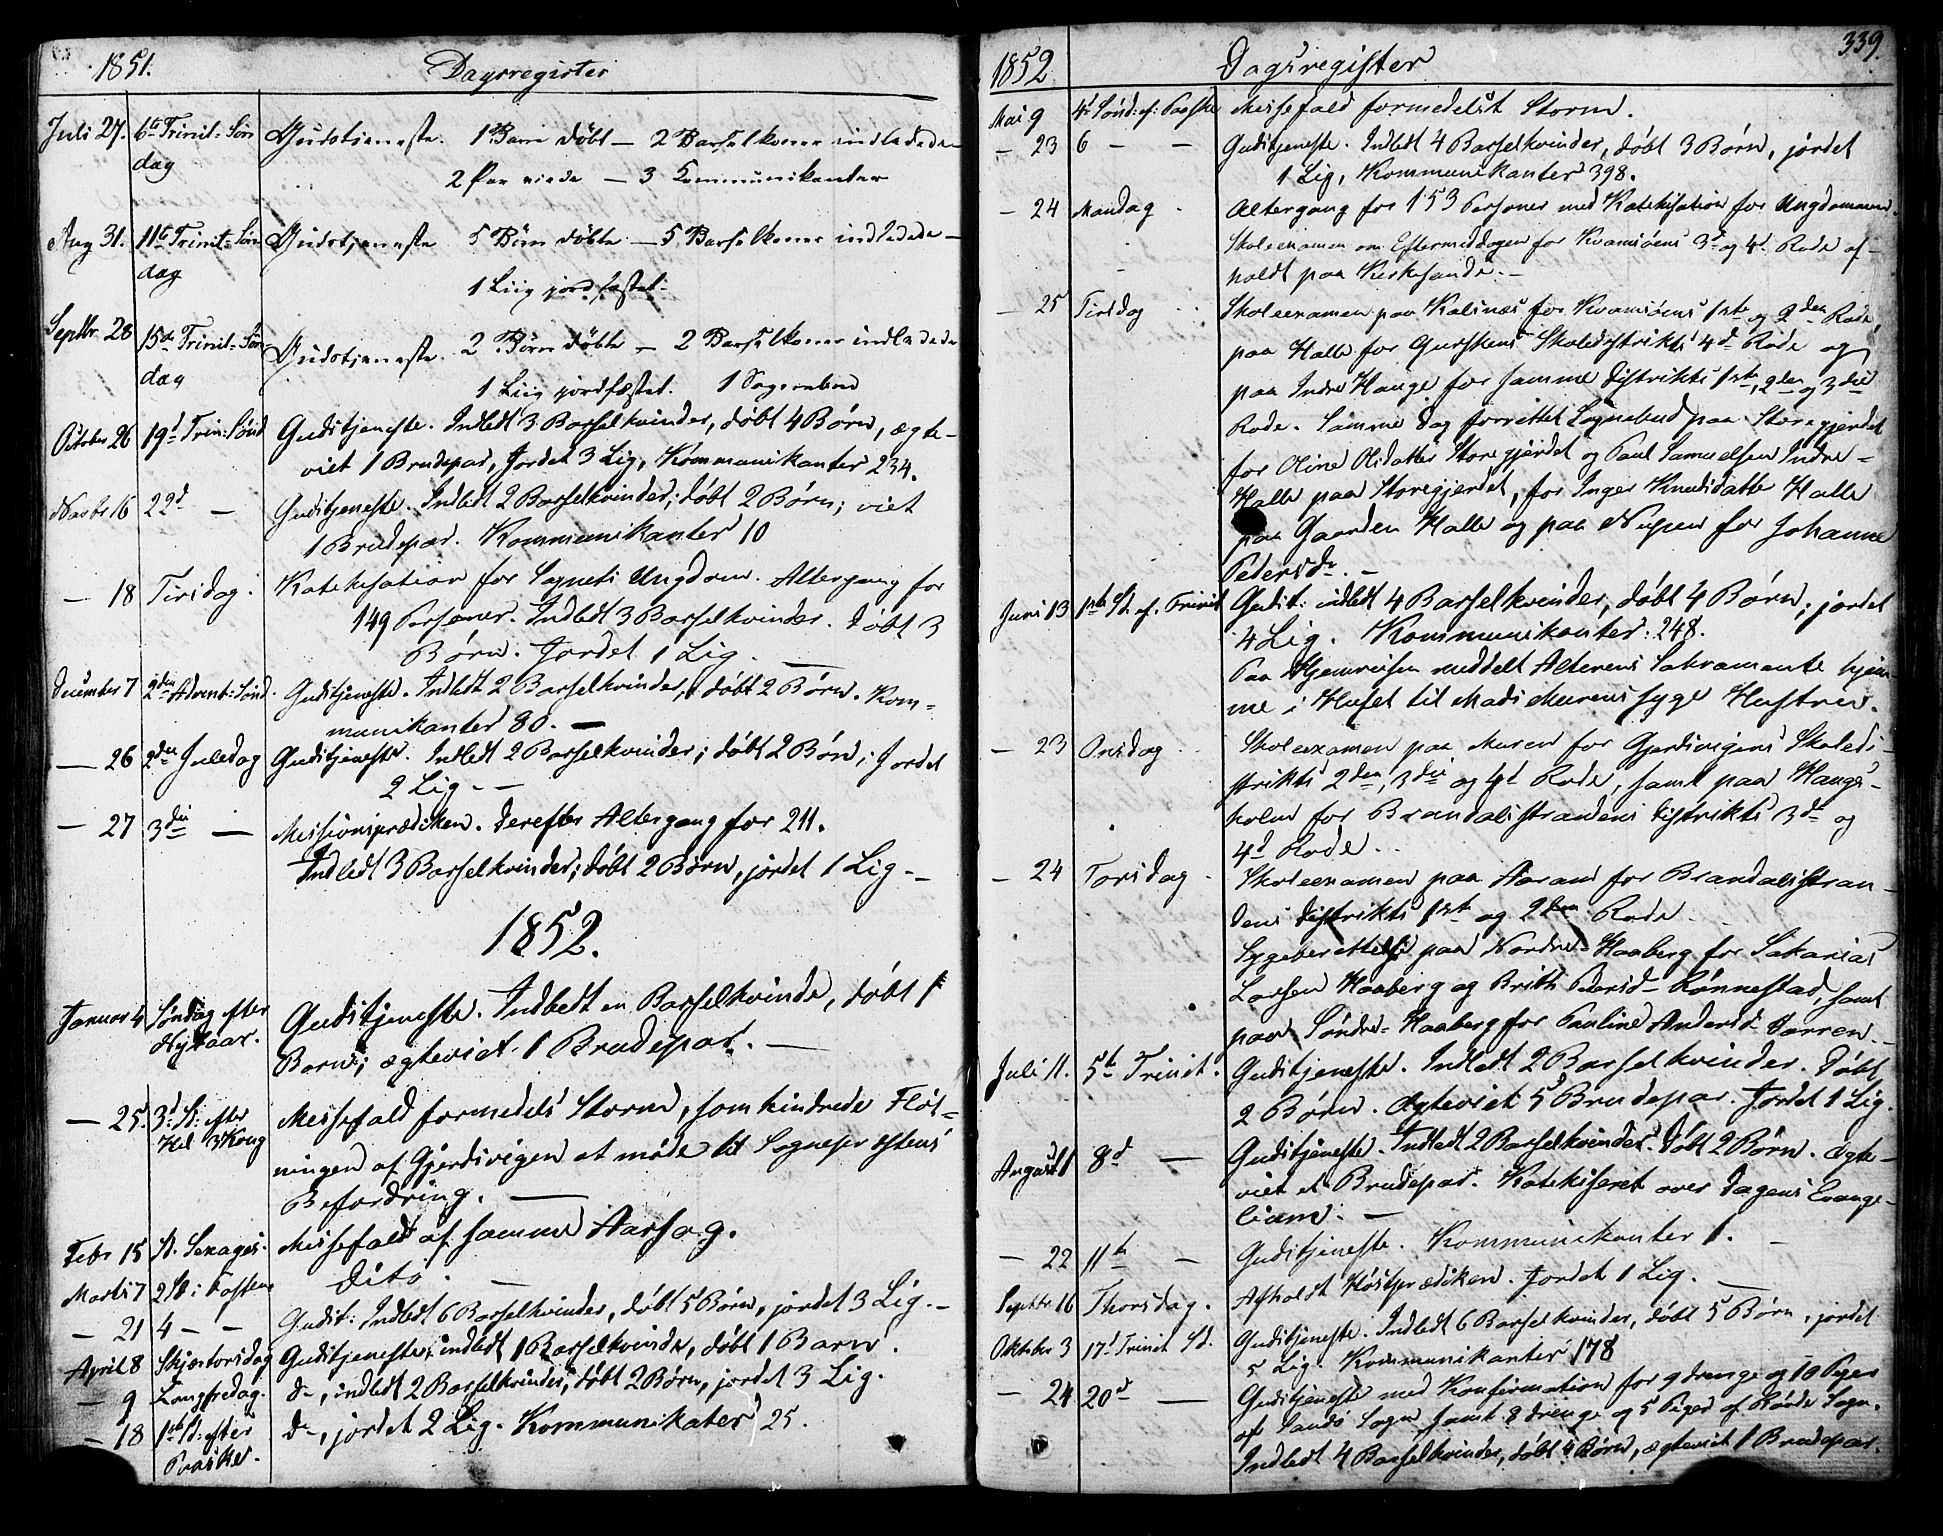 1851. Dagsregister
Juli 27. 6te Trinit: Søn Gudstjeneste. 1 Barn døbt – 2 Barselkoner indledede
dag 2 Par viede – 3 Communikanter
Aug 31. 11te Trinit: Søn Gudstjeneste 5 Børn døbte – 5 Barselkoner indledede –
dag 1 Liig jordfæstet.
Septbr. 28 15de Trinit: Søn Gudstjeneste. 2 Børn døbte – 2 Barselkoner indledede
dag 1 Liig jordfæstet. 1 Sognebud
October 26 19d Trin: Sønd Gudstjeneste. Indledt 3 Barselkvinder, døbt 4 Børn, ægte-
viet 1 Brudepar, Jordet 3 Lig, Kommunikanter 234.
Novbr 16 22d – Gudstjeneste. Indledt 2 Barselkvinder; døbt 2 Børn; viet
1 Brudepar. Kommunikanter 10
– 18 Tirsdag. Katekisation for Sognets Ungdom. Altergang for
149 Personer. Indledt 3 Barselkvinder. Døbt 3
Børn. Jordet 1 Lig. –
December 7 2den Advent: Sønd. Gudstjeneste. Indledt 2 Barselkvinder, døbt 2 Børn. Kom-
munikanter 80. –
– 26 2den Juledag Gudstjeneste. Indledt 2 Barselkvinder; døbt 2 Børn; Jordet
2 Lig. –
– 27 3die – Missionsprædiken. Derefter Altergang for 211.
Indledt 3 Barselkvinder; døbt 2 Børn, jordet 1 Lig –
1852.
Januar 4 Søndag efter Gudstjeneste. Indledt en Barselkvinde, døbt 1
Nytaar. Barn; ægteviet 1 Brudepar. –
– 25. 3d S: efter Messefald formedels Storm, som hindrede Fløt-
Hel 3 Kong ningen af Gjerdsvigen at møde til Sognepræstens
Befordring. –
Febr 15 S. Sexages. Messefald af samme Aarsag.
Marts 7 2 S: i Fasten Dito. –
– 21 4 – – Gudst: Indledt 6 Barselkvinder, døbt 5 Børn, jordet 3 Lig. –
April 8 Skjærtorsdag Gudstjeneste; indledt 1 Barselkvinde, døbt 1 Barn.
– 9 Langfredag. do, indledt 2 Barselkvinder, døbt 2 Børn, jordet 3 Lig.
– 18 1ste S: efter do, jordet 2 Lig. Kommunikater 25.
Paaske.
1852 Dagsregister 339.
Mai 9 4d Sønd: ef: Paaske Messefald formedelst Storm.
– 23 6 – – Gudstjeneste. Indledt 4 Barselkvinder, døbt 3 Børn, jordet
1 Lig, Kommunikanter 398.
– 24 Mandag. Altergang for 153 Personer med Katekisation for Ungdommen.
Skoleexamen om Eftermiddagen for Kvamsøens 3d og 4d Rode af-
holdt paa Kirkesande. –
– 25 Tirsdag Skoleexamen paa Kalsnæs for Kvamsøens 1ste og 2den Rode,
paa Halle for Gurskens Skoledistrikts 4d Rode og
paa Indre Hauge for samme Distrikts 1ste, 2den og 3die
Rode. Samme Dag forrettet Sognebud paa Storegjerdet
for Oline Olsdatter Storegjerdet og Paul Samuelsen Indre-
Halle paa Storegjerdet, for Inger Knudsdatter Halle
paa Gaarden Halle og paa Nupen for Johanne
Pedersdr. –
Juni 13 1ste Sd. ef. Trinit Gudst: indledt 4 Barselkvinder, døbt 4 Børn; jordet
4 Lig. Kommunikanter: 248.
Paa Hjemreisen meddelt Alterens Sakramente hjem-
me i Huset til Mads Murens syge Hustru.
– 23 Onsdag. Skoleexamen paa Muren for Gjerdsvigens Skoledi-
strikts 2den, 3die og 4d Rode, samt paa Haugs-
holm for Brandalsstrandens Distrikts 3d og
4d Rode.
– 24 Torsdag. Skoleexamen paa Aaram for Brandalsstran-
dens Distrikts 1ste og 2den Rode.
Sygeberettelse paa Nordre-Haaberg for Sakarias
Larsen Haaberg og Brith Pedersd. Rønnestad, samt
paa Søndre-Haaberg for Pauline Andersd.
Juli 11. 5te Trinit. Gudstjeneste. Indledt 2 Barselkvinder. Døbt
2 Børn. Ægteviet 5 Brudepar. Jordet 1 Lig.
August 1 8d – Gudstjeneste. Indledt 2 Barselkvinder. Døbt 2 Børn. Ægte-
viet et Brudepar. Katekiseret over Dagens Evange-
lium. –
– 22 11te – Gudstjeneste. Kommunikanter 1. –
Septbr 16 Thorsdag. Afholdt Høstprædiken. Jordet 1 Lig. –
Oktober 3 17d Trinit Sd. Gudstjeneste. Indledt 6 Barselkvinder, døbt 5 Børn, jordet
5 Lig. Kommunikanter 178
– 24 20d – Gudstjeneste med Konfirmation for 9 Drenge og 10 Piger
af Sandø Sogn samt 8 Drenge og 5 Piger af Røvde Sogn.
Indledt 4 Barselkvinder, døbt 4 Børn, ægteviet 1 Brudepar.